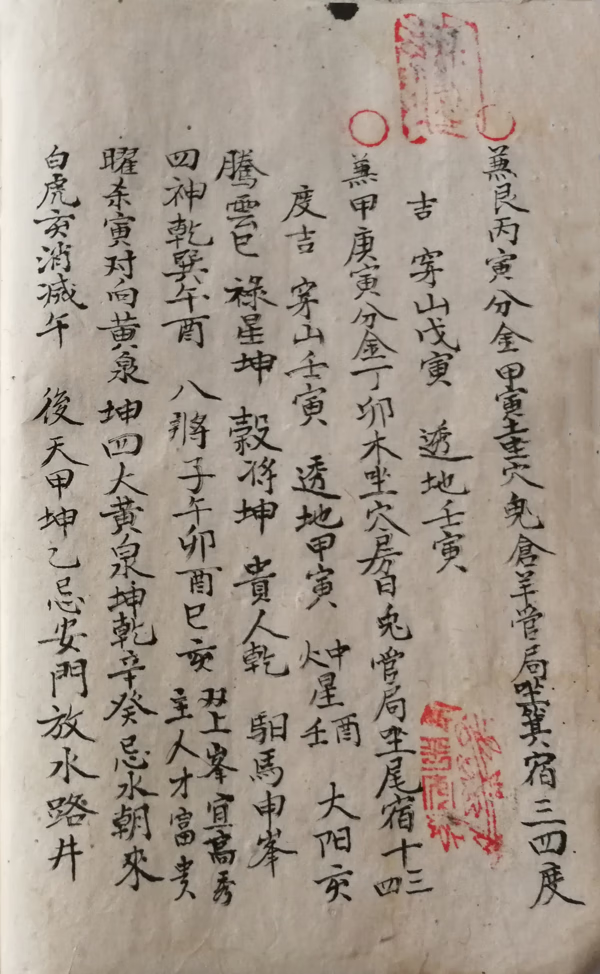 兼艮丙寅分金甲寅土坐穴鬼倉羊管局坐箕宿三四度
吉 穿山戊寅 透地壬寅
兼甲庚寅分金丁卯木坐穴房日兔管局坐尾宿十三四
度吉 穿山壬寅 透地甲寅 炉星酉壬 大阳亥
騰雲巳 祿星坤 穀将坤 貴人乾 馹馬申峯
四神乾巽午酉 八將子午卯酉巳亥 以上峯宜高秀主人才富贵
曜杀寅对向黄泉坤四大黄泉坤乾辛癸忌水朝來
白虎亥消減午 後天甲坤乙忌安門放水路井